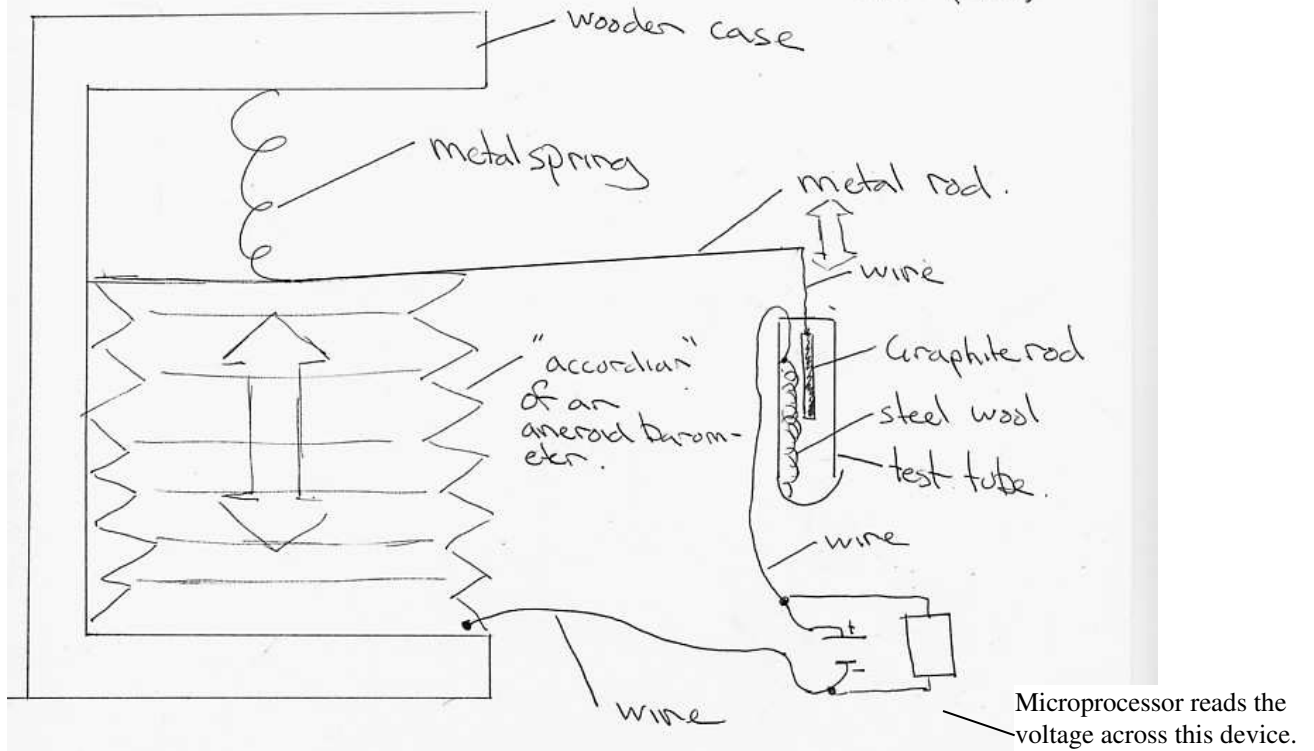 wooden case
metal spring
metal rod.
wire
Graphite rod
"accordian"
of an
aneroid barom-
eter.
steel wool
test tube.
wire
+
-
wire
Microprocessor reads the
voltage across this device.